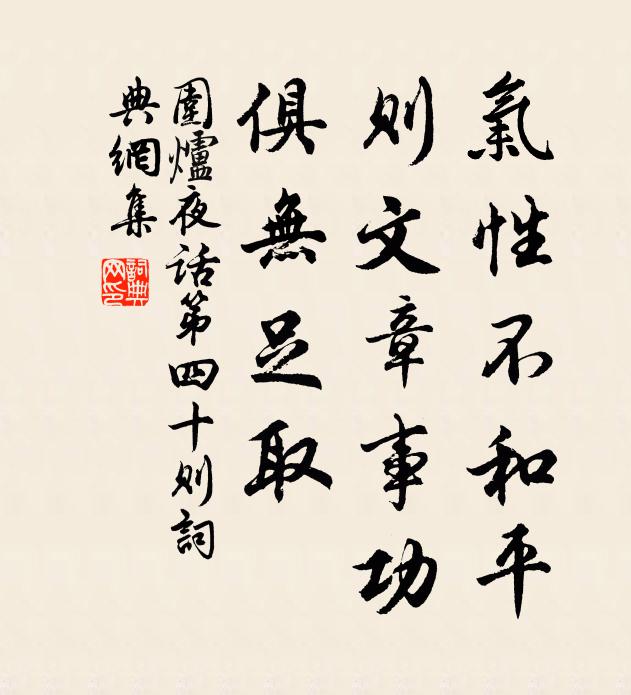 氣性不和平
則文章事功
俱無足取
圍爐夜話第四十則詞
典網集
詞典
网印